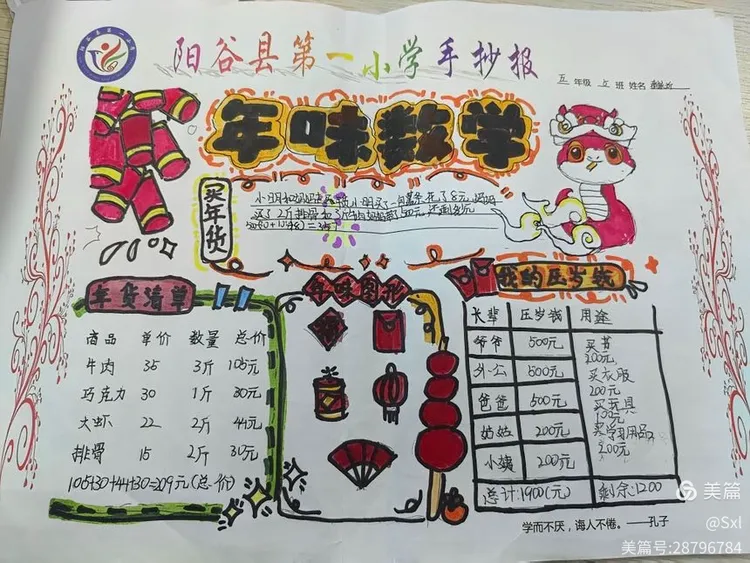 阳谷县第一小学手抄报
五年级 班 姓名
年味数学
买年货
年货清单
商品 单价 数量 总价
牛肉 35 3斤 105元
巧克力 30 1斤 30元
大虾 22 2斤 44元
排骨 15 2斤 30元
105+30+44+30=209元(总价)
年味图形
我的压岁钱
长辈 压岁钱 用途
爷爷 500元 买书
200元
外公 500元 买衣服
200元
爸爸 500元 买玩具
100元
姑姑 200元 买学习用品
200元
小姨 200元
总计:1900(元) 剩余:1200
学而不厌，诲人不倦。——孔子
美篇
@Sxl
美篇号:28796784